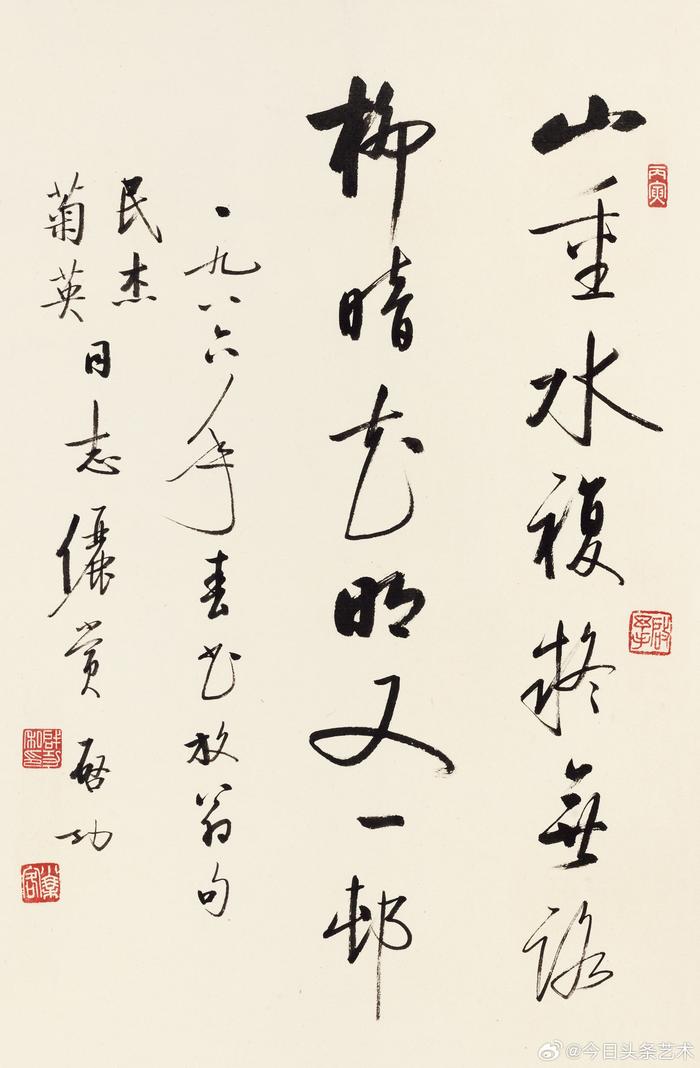 山重水複疑無路
丙寅
柳暗花明又一邨
一九八六年春书放翁句
民杰
菊英
同志儷赏
啓功
@今日头条艺术